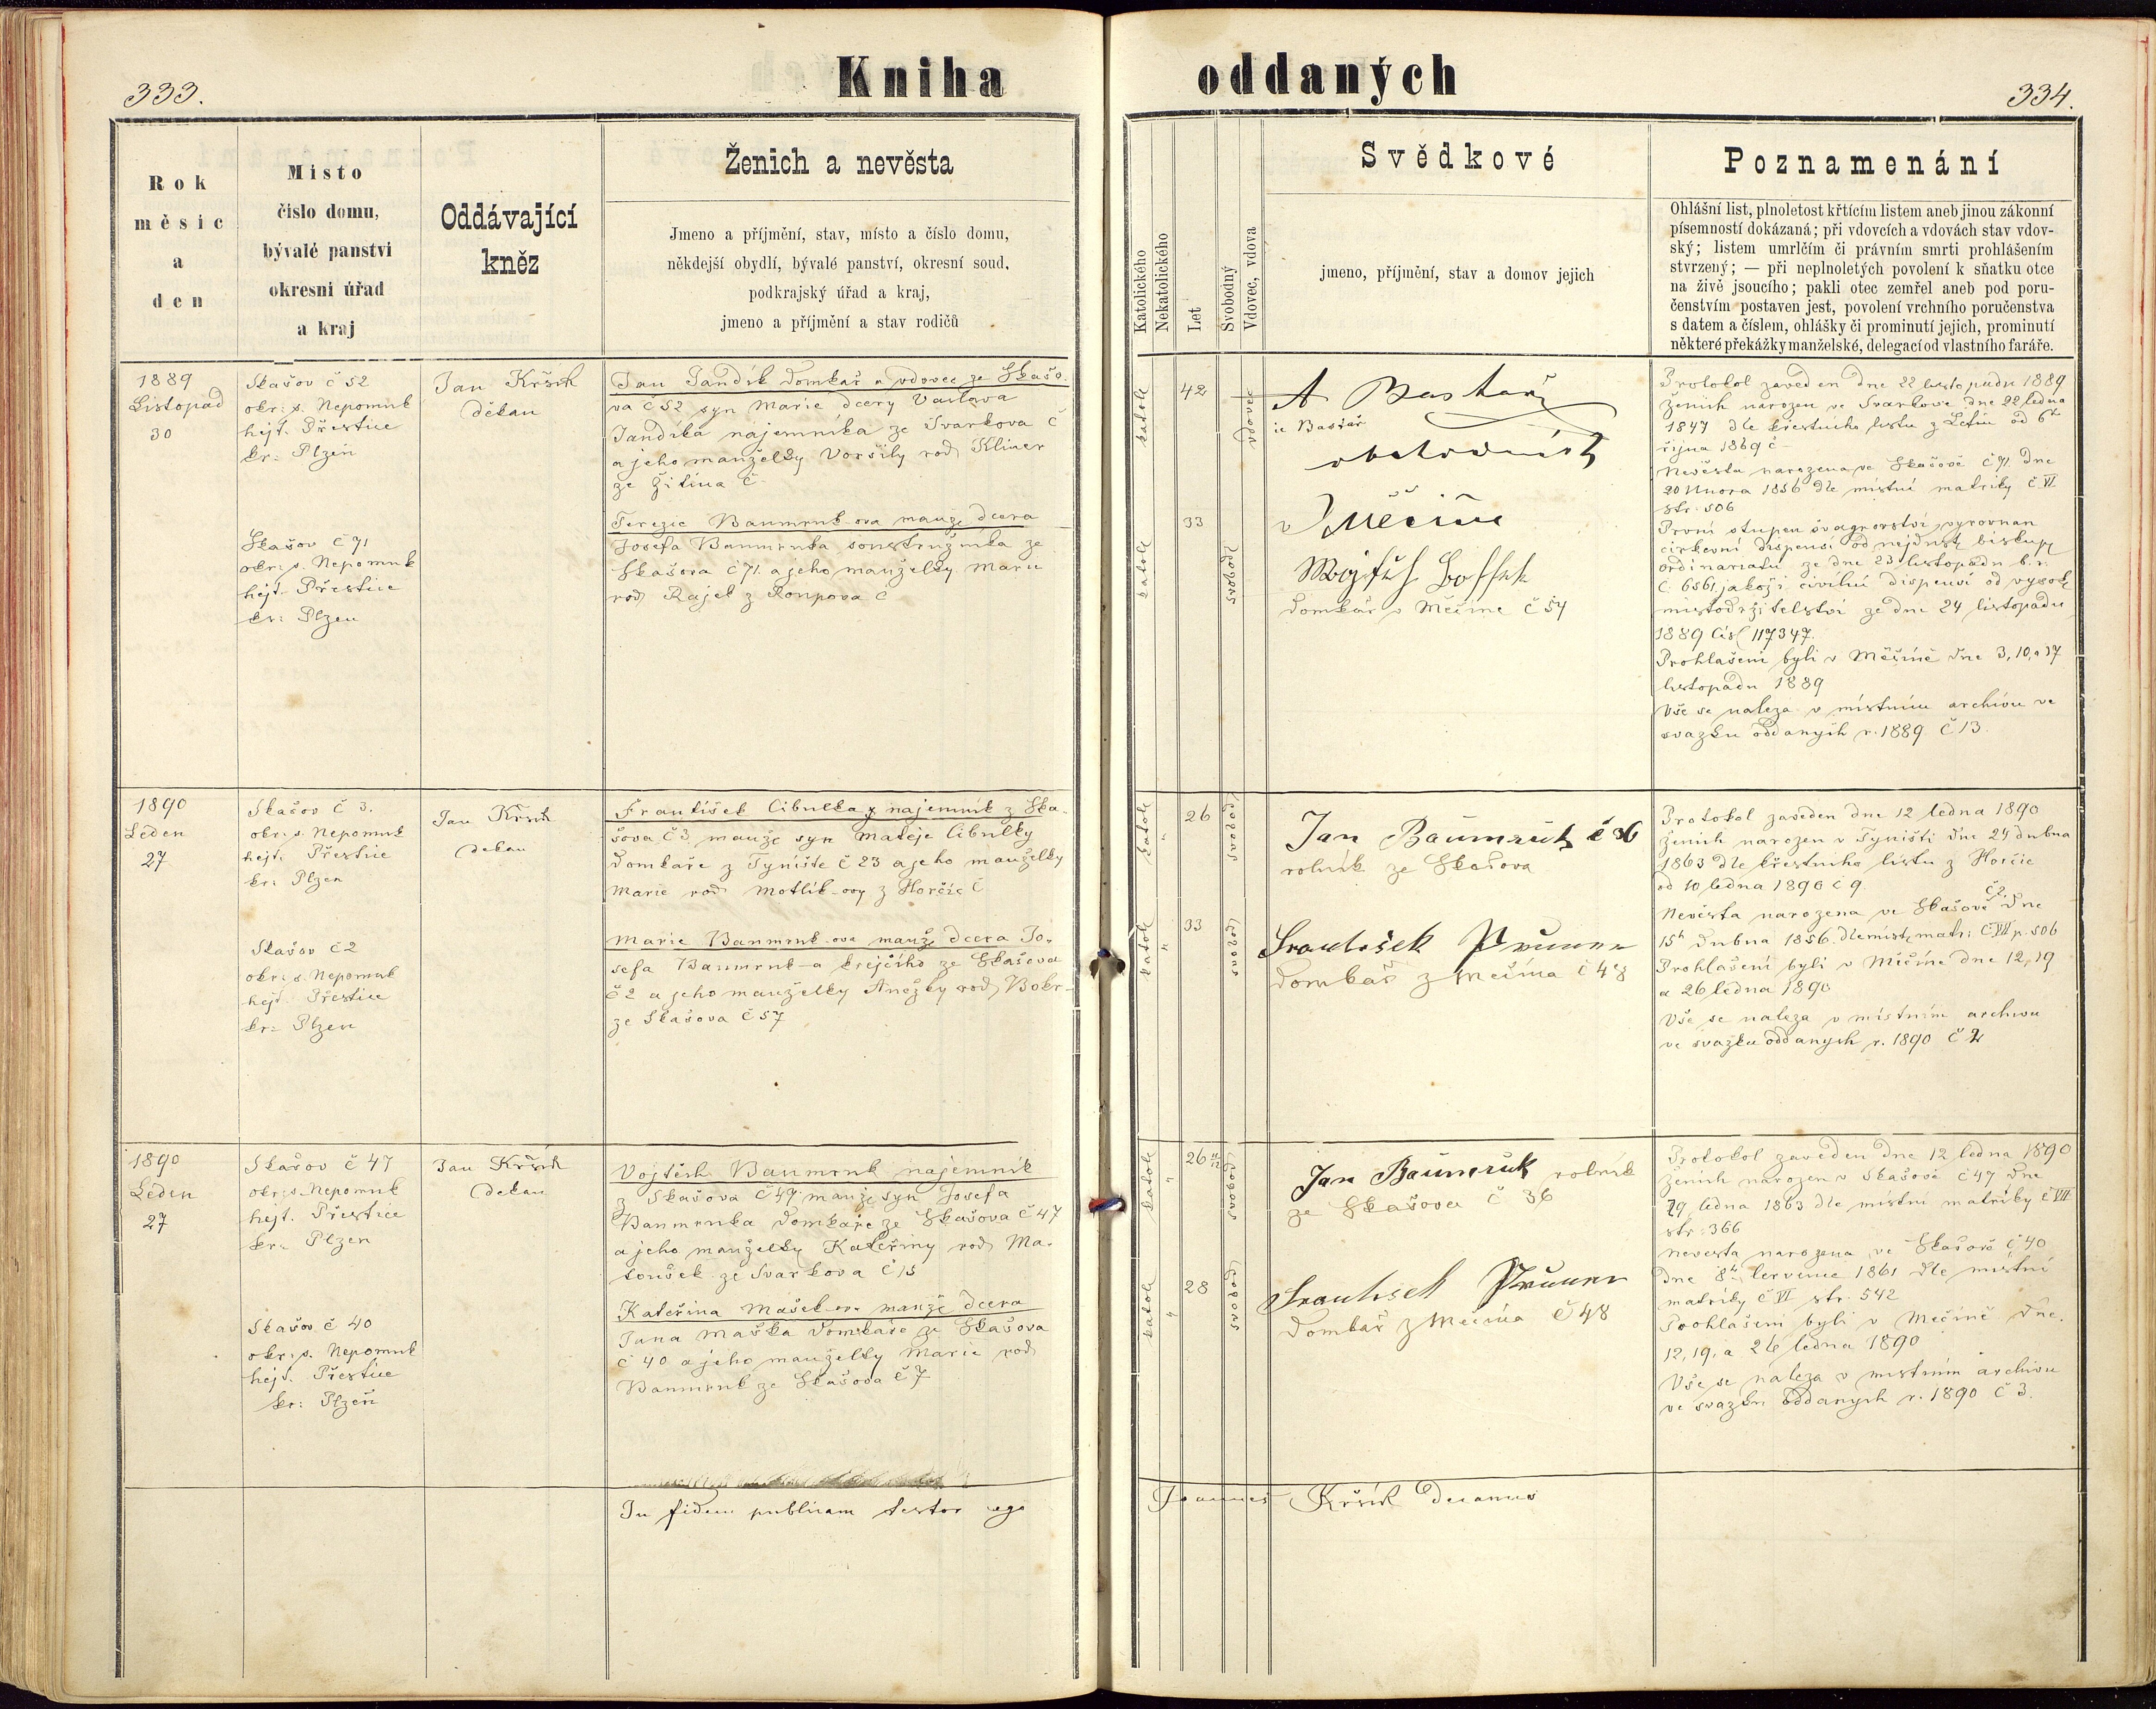 333.
Kniha
Rok
měsíc
a
den
Místo
číslo domu,
bývalé panství
okresní úřad
a kraj
Oddávající
kněz
Ženich a nevěsta
Jmeno a příjmění, stav, místo a číslo domu,
někdejší obydlí, bývalé panství, okresní soud,
podkrajský úřad a kraj,
jmeno a příjmění a stav rodičů
1889
Listopad
30
Skašov č 52
okr: s. Nepomuk
hejt. Přestice
kr: Plzeň
Skašov č 71
okr: s. Nepomuk
hejt. Přestice
kr: Plzen
Jan Kršik
děkan
Jan Jandík domkař a vdovec ze Skašo-
va č 52 syn Marie dcery Vaclava
Jandíka najemníka ze Svarkova č
a jeho manželky Voršily rod Kliner
ze Žitína č
Terezie Baumruk-ova manž dcera
Josefa Baumruka soustružníka ze
Skašova č 71. a jeho manželky Marie
rod Rajel z Roupova č
1890
Leden
27
Skašov č 3.
okr: s. Nepomuk
hejt. Přestice
kr: Plzen
Skašov č 2
okr: s. Nepomuk
hejt. Přestice
kr: Plzen
Jan Kršik
dekan
František Cibulka najemník z Ska-
šova č 3. manže syn Mateje Cibulky
domkaře z Tyniště č 23 a jeho manželky
Marie rod Motlík-ovy z Horčic č
Marie Baumruk-ova manž dcera Jo-
sefa Baumruk-a krejčího ze Skašova
č 2 a jeho manželky Anežky rod Bokr-
ze Skašova č 57
1890
Leden
27
Skašov č 47
okr: s. Nepomuk
hejt. Přestice
kr: Plzen
Skašov č 40
okr: s. Nepomuk
hejt. Přestice
kr: Plzeň
Jan Kršik
dekan
Vojtěch Baumruk najemník
z Skašova č 47 manže syn Josefa
Baumruka domkaře ze Skašova č 47
a jeho manželky Kateřiny rod Ma-
toušek ze Svarkova č 15
Kateřina Mašek-ova manže dcera
Jana Maška domkaře ze Skašova
č 40 a jeho manželky Marie rod
Baumruk ze Skašova č 7
In fidem publicam testor ego
oddaných
334.
Katolického
Nekatolického
Let
Svobodný
Vdovec, vdova
Svědkové
jmeno, příjmění, stav a domov jejich
Poznamenání
Ohlášní list, plnoletost křtícím listem aneb jinou zákonní
písemností dokázaná; při vdovcích a vdovách stav vdov-
ský; listem umrlčím či právním smrti prohlášením
stvrzený; — při neplnoletých povolení k sňatku otce
na živě jsoucího; pakli otec zemřel aneb pod poru-
čenstvím postaven jest, povolení vrchního poručenstva
s datem a číslem, ohlášky či prominutí jejich, prominutí
některé překážky manželské, delegací od vlastního faráře.
katol
42
vdovec
A Bastař
ic Bastář
obchodník
katol
33
svobod
v Měčíně
domkář v Měčíne č 54
Protokol zaveden dne 22 listopadu 1889
ženich narozen ve Svarkove dne 22 ledna
1847 dle křestního listu z Letin od 6ho
října 1869 č
Nevěsta narozena ve Skašově č 71. dne
20 Unora 1856 dle místní matriky č. VI.
str. 506
První stupen švagrovství vyrovnan
cirkevní dispensí od nejdust. biskup
ordinariatu ze dne 23 listopadu b. r.
č. 6561. jakož i civilní dispensí od vysok
mistodržitelství ze dne 24 listopadu
1889 čisl 117347.
Prohlašeni byli v Měčíně dne 3, 10, a 17
listopadu 1889
Vše se naleza v místním archivu ve
svazku oddaných r. 1889 č 13.
katol
"
26
svobod
Jan Baumruk č 36
rolník ze Skašova
katol
"
33
svobod
František Pruner
domkař z Mečína č 48
Protokol zaveden dne 12 ledna 1890
ženich narozen v Tyništi dne 24 dubna
1863 dle křestního listu z Horčic
od 10 ledna 1890 č 9.
Nevěsta narozena ve Skašově č 2. dne
15ho dubna 1856. dle mist. matr: č VII p. 506
Prohlašeni byli v Měčíne dne 12, 19
a 26 ledna 1890
Vše se naleza v místním archivu
ve svazku oddaných r. 1890 č 2
katol
"
26
svobod
Jan Baumruk rolník
ze Skašova č 36
katol
"
28
svobod
František Pruner
domkař z Mečína č 48
Protokol zaveden dne 12 ledna 1890
ženich narozen v Skašově č 47 dne
29 ledna 1863 dle místní matriky č VII
str: 366
nevesta narozena ve Skašově č 40
dne 8ho července 1861 dle místní
matriky č VI str. 542
Prohlašeni byli v Mečíně dne.
12, 19, a 26 ledna 1890
Vše se naleza v místním archivu
ve svazku oddaných r. 1890 č 3.
Joannes Kršik Decanus